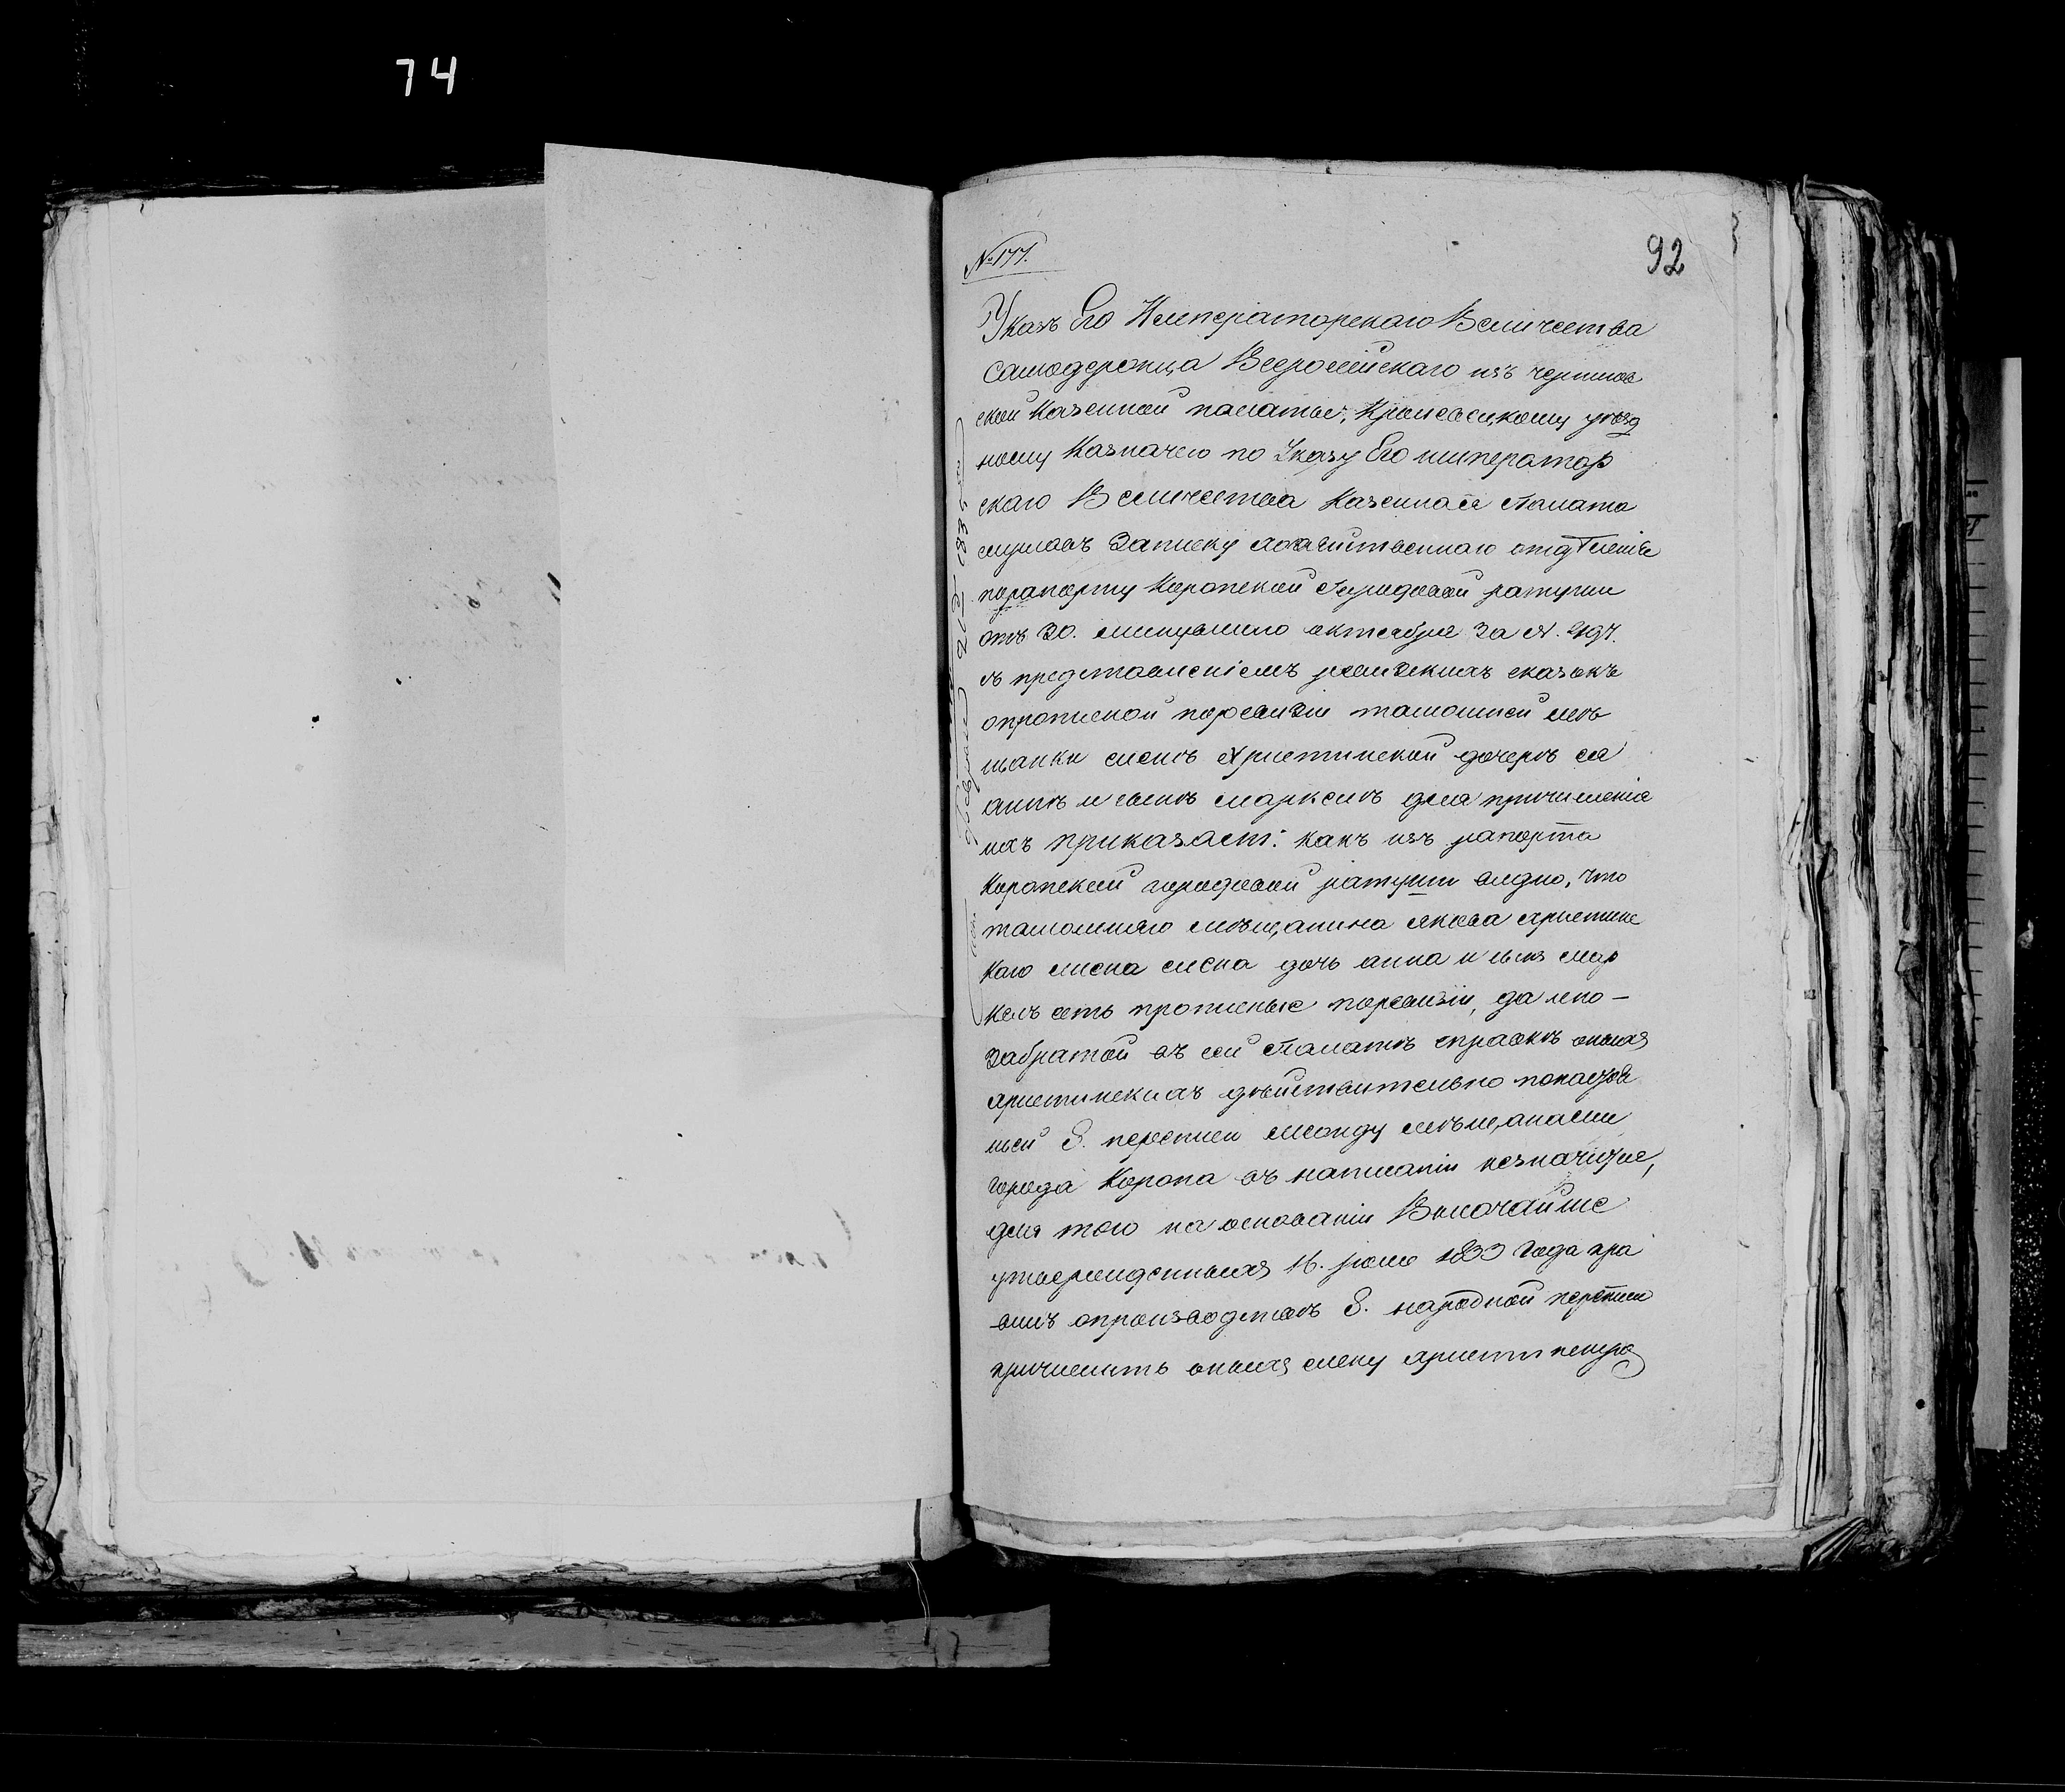 74
92
№ 177.
Указъ Его Императорскаго Величества
самодержца Всеросійскаго изъ чернигов
ской казенной палаты, Кролевецкому уезд
ному Казначею по Указу Его император
скаго Величества Казенная Палата
слушавъ записку хозяйственнаго отдѣленія
порапорту Коропской Городовой ратуши
отъ 30. минувшаго октября за №. 2197.
съ представленіемъ ревизкихъ сказокъ
опрописной поревизіи тамошней мѣ
щанки еленѣ Христинской дочерѣ ея
аннѣ и сынѣ маркелѣ для причисленія
ихъ приказали: какъ изъ рапорта
Коропской городовой ратуши видно, что
тамошняго мѣщанина якова христинс
каго жена елена дочь анна и сынъ мар
келъ есть прописные поревизіи, да ипо-
забратой въ сей Палатѣ справкѣ оныхъ
христинскихъ дѣйствительно понастоя
щей 8. переписи между мѣщанами
города Коропа въ написаніи незначится,
для того на основаніи Высочайше
утвержденныхъ 16. іюня 1833 года пра
вилъ опроизводствѣ 8. народной переписи
причислить оныхъ елену христинскую